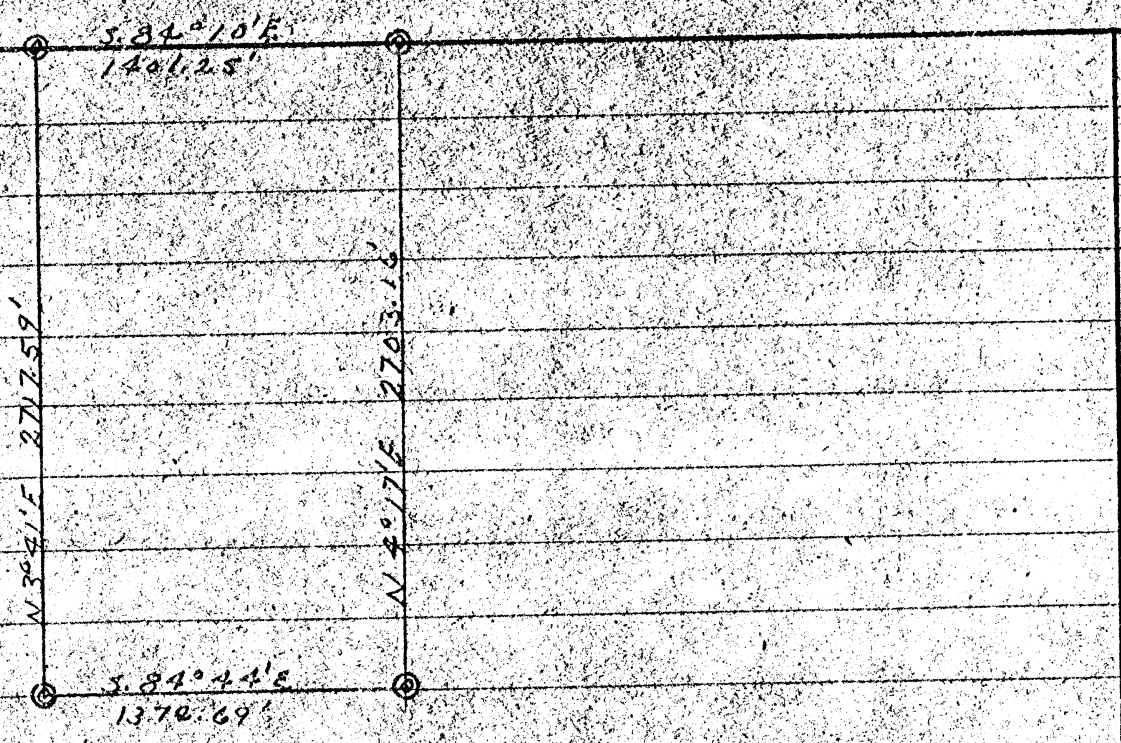 S. 84° 10' E
1401.25'
N 3° 41' E 2717.59'
N 4° 17' E 2703.16'
S. 84° 44' E
1372.69'